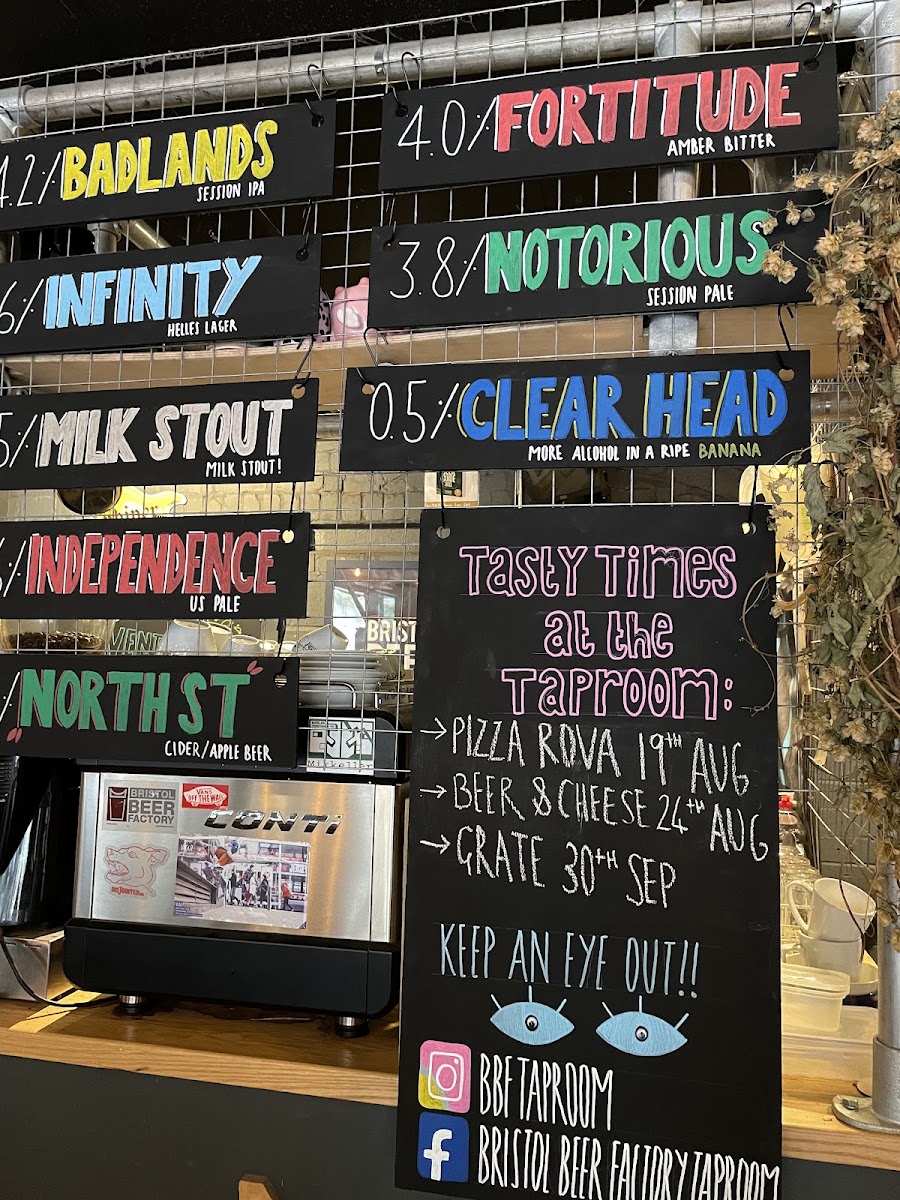 4.2% BADLANDS
SESSION IPA
6% INFINITY
HELLES LAGER
5% MILK STOUT
MILK STOUT!
% INDEPENDENCE
US PALE
% NORTH ST
CIDER/APPLE BEER
4.0% FORTITUDE
AMBER BITTER
3.8% NOTORIOUS
SESSION PALE
0.5% CLEAR HEAD
MORE ALCOHOL IN A RIPE BANANA
TASTY TIMES
at the
TAPROOM:
→PIZZA ROVA 19TH AUG
→BEER & CHEESE 24TH AUG
→GRATE 30TH SEP
KEEP AN EYE OUT!!
BBFTAPROOM
f BRISTOL BEER FACTORY TAPROOM
BRIST
VENT
Mikkeller
BRISTOL
BEER
FACTORY
VANS
"OFF THE WALL"
CONTI